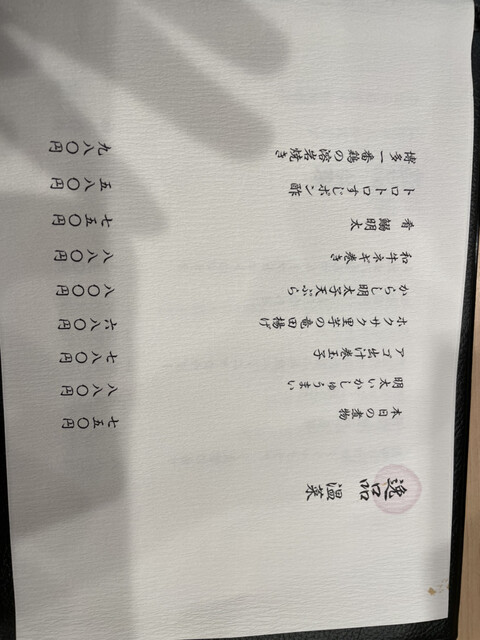 逸品 温菜
本日の煮物 七五〇円
明太いかしゅうまい 八八〇円
アゴ出汁巻玉子 七八〇円
ホクサク里芋の竜田揚げ 六八〇円
からし明太子天ぷら 八〇〇円
和牛ネギ巻き 八八〇円
肴 鰯明太 七五〇円
トロトロすじポン酢 五八〇円
博多一番鶏の溶岩焼き 九八〇円